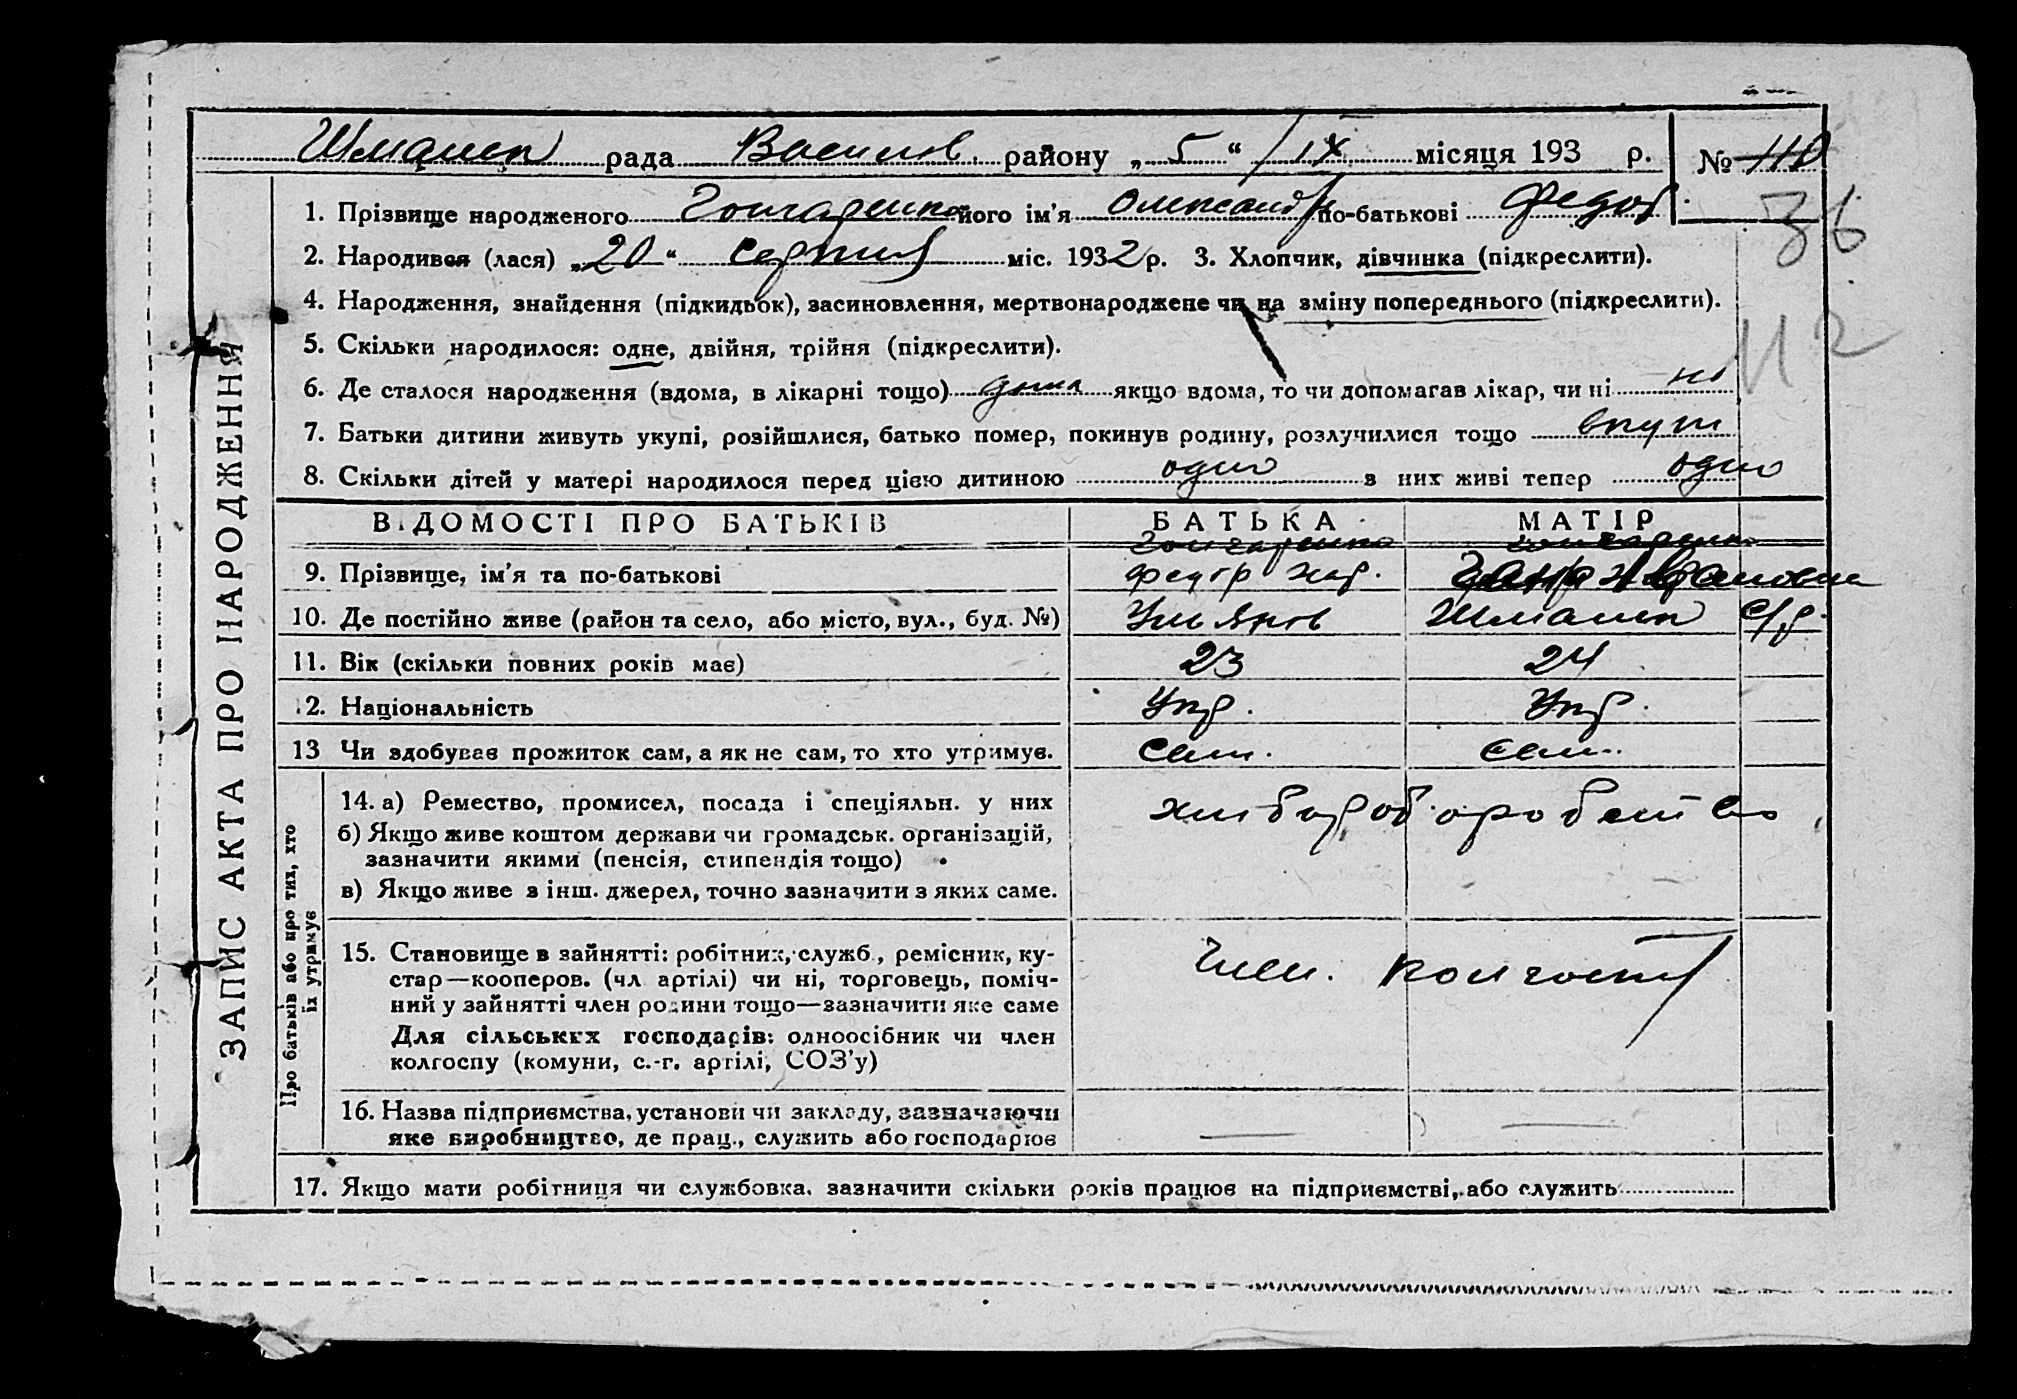 рада Васильів. району „5“ IX місяця 193 р. №110
1. Прізвище народженого Гончаренко його ім'я Олександр по-батькові Федор.
36
2. Народився (лася) „20“ серпня міс. 1932 р. 3. Хлопчик, дівчинка (підкреслити).
4. Народження, знайдення (підкидьок), засиновлення, мертвонароджене чи на зміну попереднього (підкреслити).
112
5. Скільки народилося: одне, двійня, трійня (підкреслити).
6. Де сталося народження (вдома, в лікарні тощо) дома якщо вдома, то чи допомагав лікар, чи ні ні
7. Батьки дитини живуть укупі, розійшлися, батько помер, покинув родину, розлучилися тощо вкупі
8. Скільки дітей у матері народилося перед цією дитиною одно з них живі тепер одно
ВІДОМОСТІ ПРО БАТЬКІВ БАТЬКА МАТІР
Гончаренко Гончаренко
9. Прізвище, ім'я та по-батькові Федір
10. Де постійно живе (район та село, або місто, вул., буд. №) с/р.
11. Вік (скільки повних років має) 23 24
12. Національність Укр. Укр.
13 Чи здобуває прожиток сам, а як не сам, то хто утримує. Сам. Сам.
14. а) Ремество, промисел, посада і спеціяльн. у них
б) Якщо живе коштом держави чи громадськ. організацій,
зазначити якими (пенсія, стипендія тощо)
в) Якщо живе з інш. джерел, точно зазначити з яких саме.
15. Становище в зайнятті: робітник, служб., ремісник, ку-
стар—кооперов. (чл артілі) чи ні, торговець, поміч-
ний у зайнятті член родини тощо—зазначити яке саме
Член. колгоспу
Для сільських господарів: одноосібник чи член
колгоспу (комуни, с.-г. артілі, СОЗ'у)
16. Назва підприємства, установи чи закладу, зазначаючи
яке виробництво, де прац., служить або господарює
17. Якщо мати робітниця чи службовка, зазначити скільки років працює на підприємстві, або служить
ЗАПИС АКТА ПРО НАРОДЖЕННЯ
Про батьків або про тих, хто
їх утримує